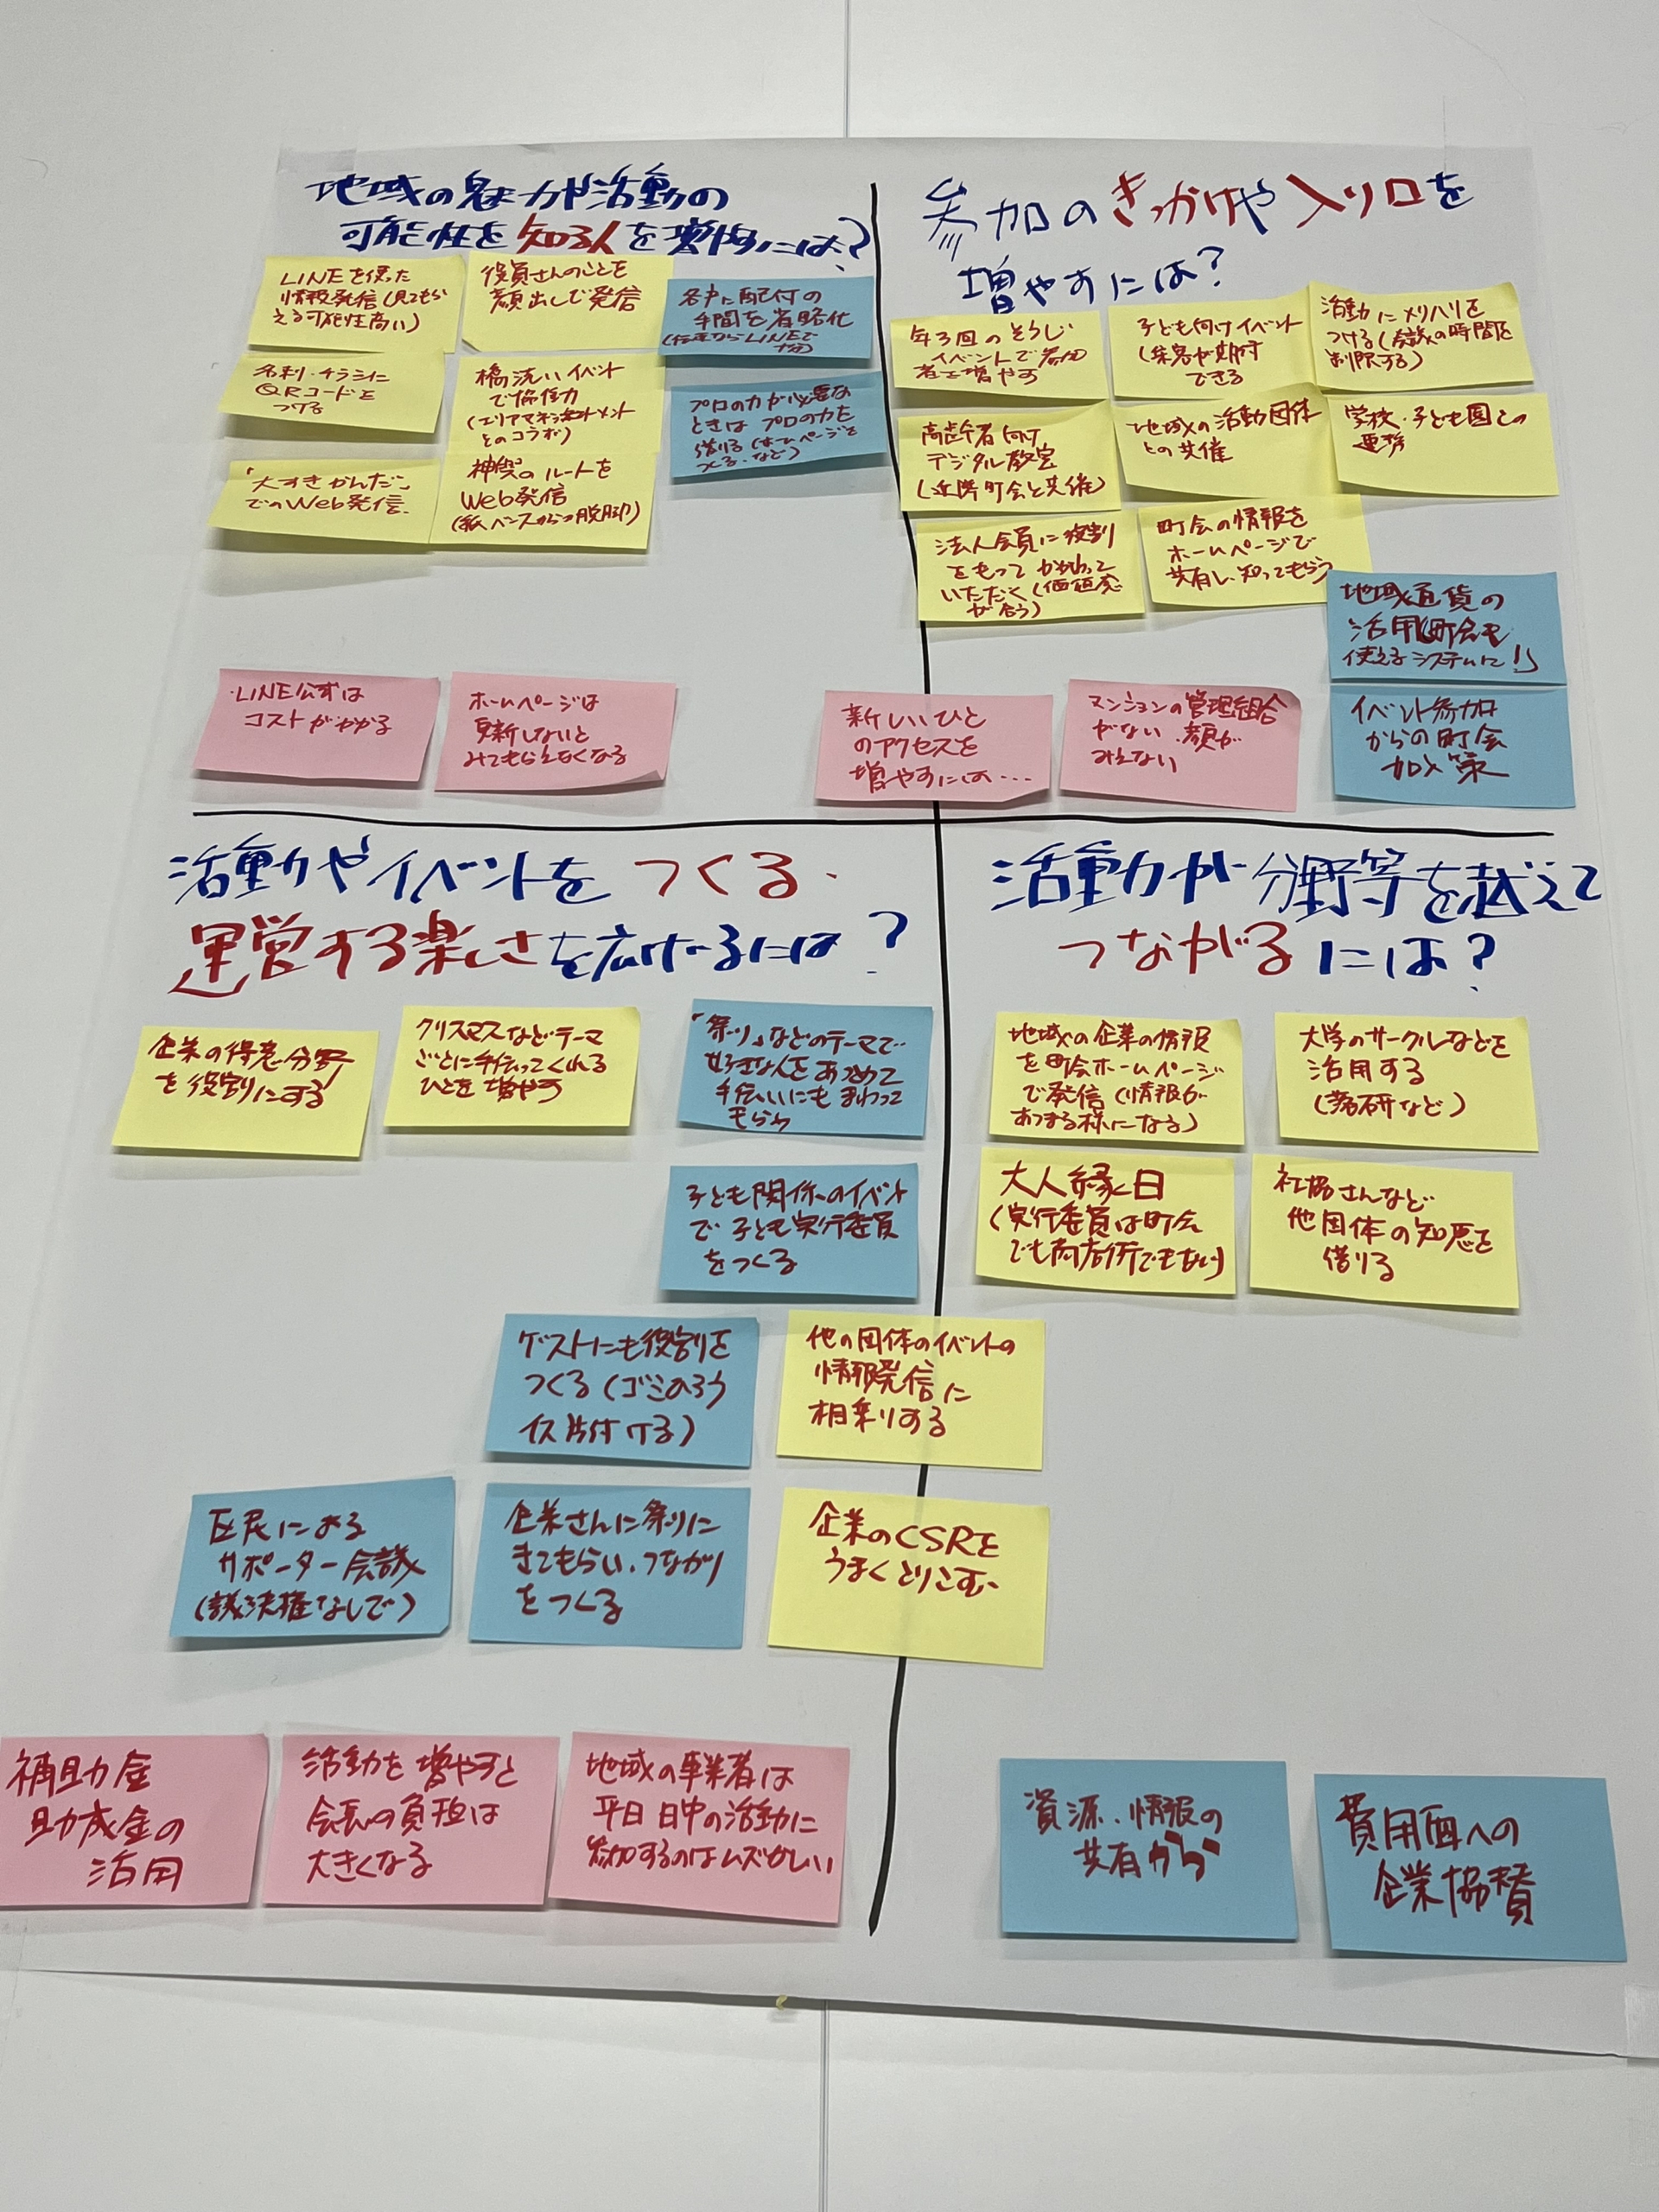 地域の魅力や活動の
可能性を知る人を増やすには?
LINEを使った
情報発信(見てもら
える可能性高い)
役員さんのことを
顔出しで発信
各戸に配付の
手間を省略化
名刺・チラシに
QRコードを
つける
橋洗いイベント
で協力
(エリアマネジメント
とのコラボ)
プロの力が必要な
ときは プロの力を
借りる(ホームページを
つくる、など)
「大すきかんだ」
でのWeb発信.
神輿のルートを
Web発信
(紙ベースからの脱却)
・LINE公式は
コストがかかる
ホームページは
更新しないと
みてもらえなくなる
参加のきっかけや入り口を
増やすには?
年3回のそうじ
イベントで参加
者を増やす
子ども向けイベント
(集客が期待
できる
活動にメリハリを
つける(会議の時間を
制限する)
高齢者向け
デジタル教室
(近隣町会と共催)
地域の活動団体
との共催
学校・子ども園との
連携
法人会員に役割
をもってかかわって
いただく(価値感
が合う)
町会の情報を
ホームページで
共有し、知ってもらう
地域通貨の
活用(町会も
使えるシステムに!)
新しいひと
のアクセスを
増やすには…
マンションの管理組合
がない.顔が
みえない
イベント参加
からの町会
加入策
活動やイベントをつくる・
運営する楽しさを広げるには?
企業の得意分野
を役割にする
クリスマスなどテーマ
ごとに手伝ってくれる
ひとを増やす
「祭り」などのテーマで
好きな人をあつめて
手伝いにもまわって
もらう
子ども関係のイベント
で子ども実行委員
をつくる
ゲストにも役割を
つくる(ゴミひろう
イス片付ける)
区民による
サポーター会議
(議決権なしで)
企業さんに祭りに
きてもらい、つながり
をつくる
補助金
助成金の
活用
活動を増やすと
会長の負担は
大きくなる
地域の事業者は
平日日中の活動に
参加するのはムズかしい
活動が分野等を越えて
つながるには?
地域の企業の情報
を町会ホームページ
で発信(情報が
あつまる様になる)
大学のサークルなどを
活用する
(落研など)
大人縁日
(実行委員は町会
でも商店街でもない)
社協さんなど
他団体の知恵を
借りる
他の団体のイベントの
情報発信に
相乗りする
企業のCSRを
うまくとりこむ
資源・情報の
共有から
費用面への
企業協賛